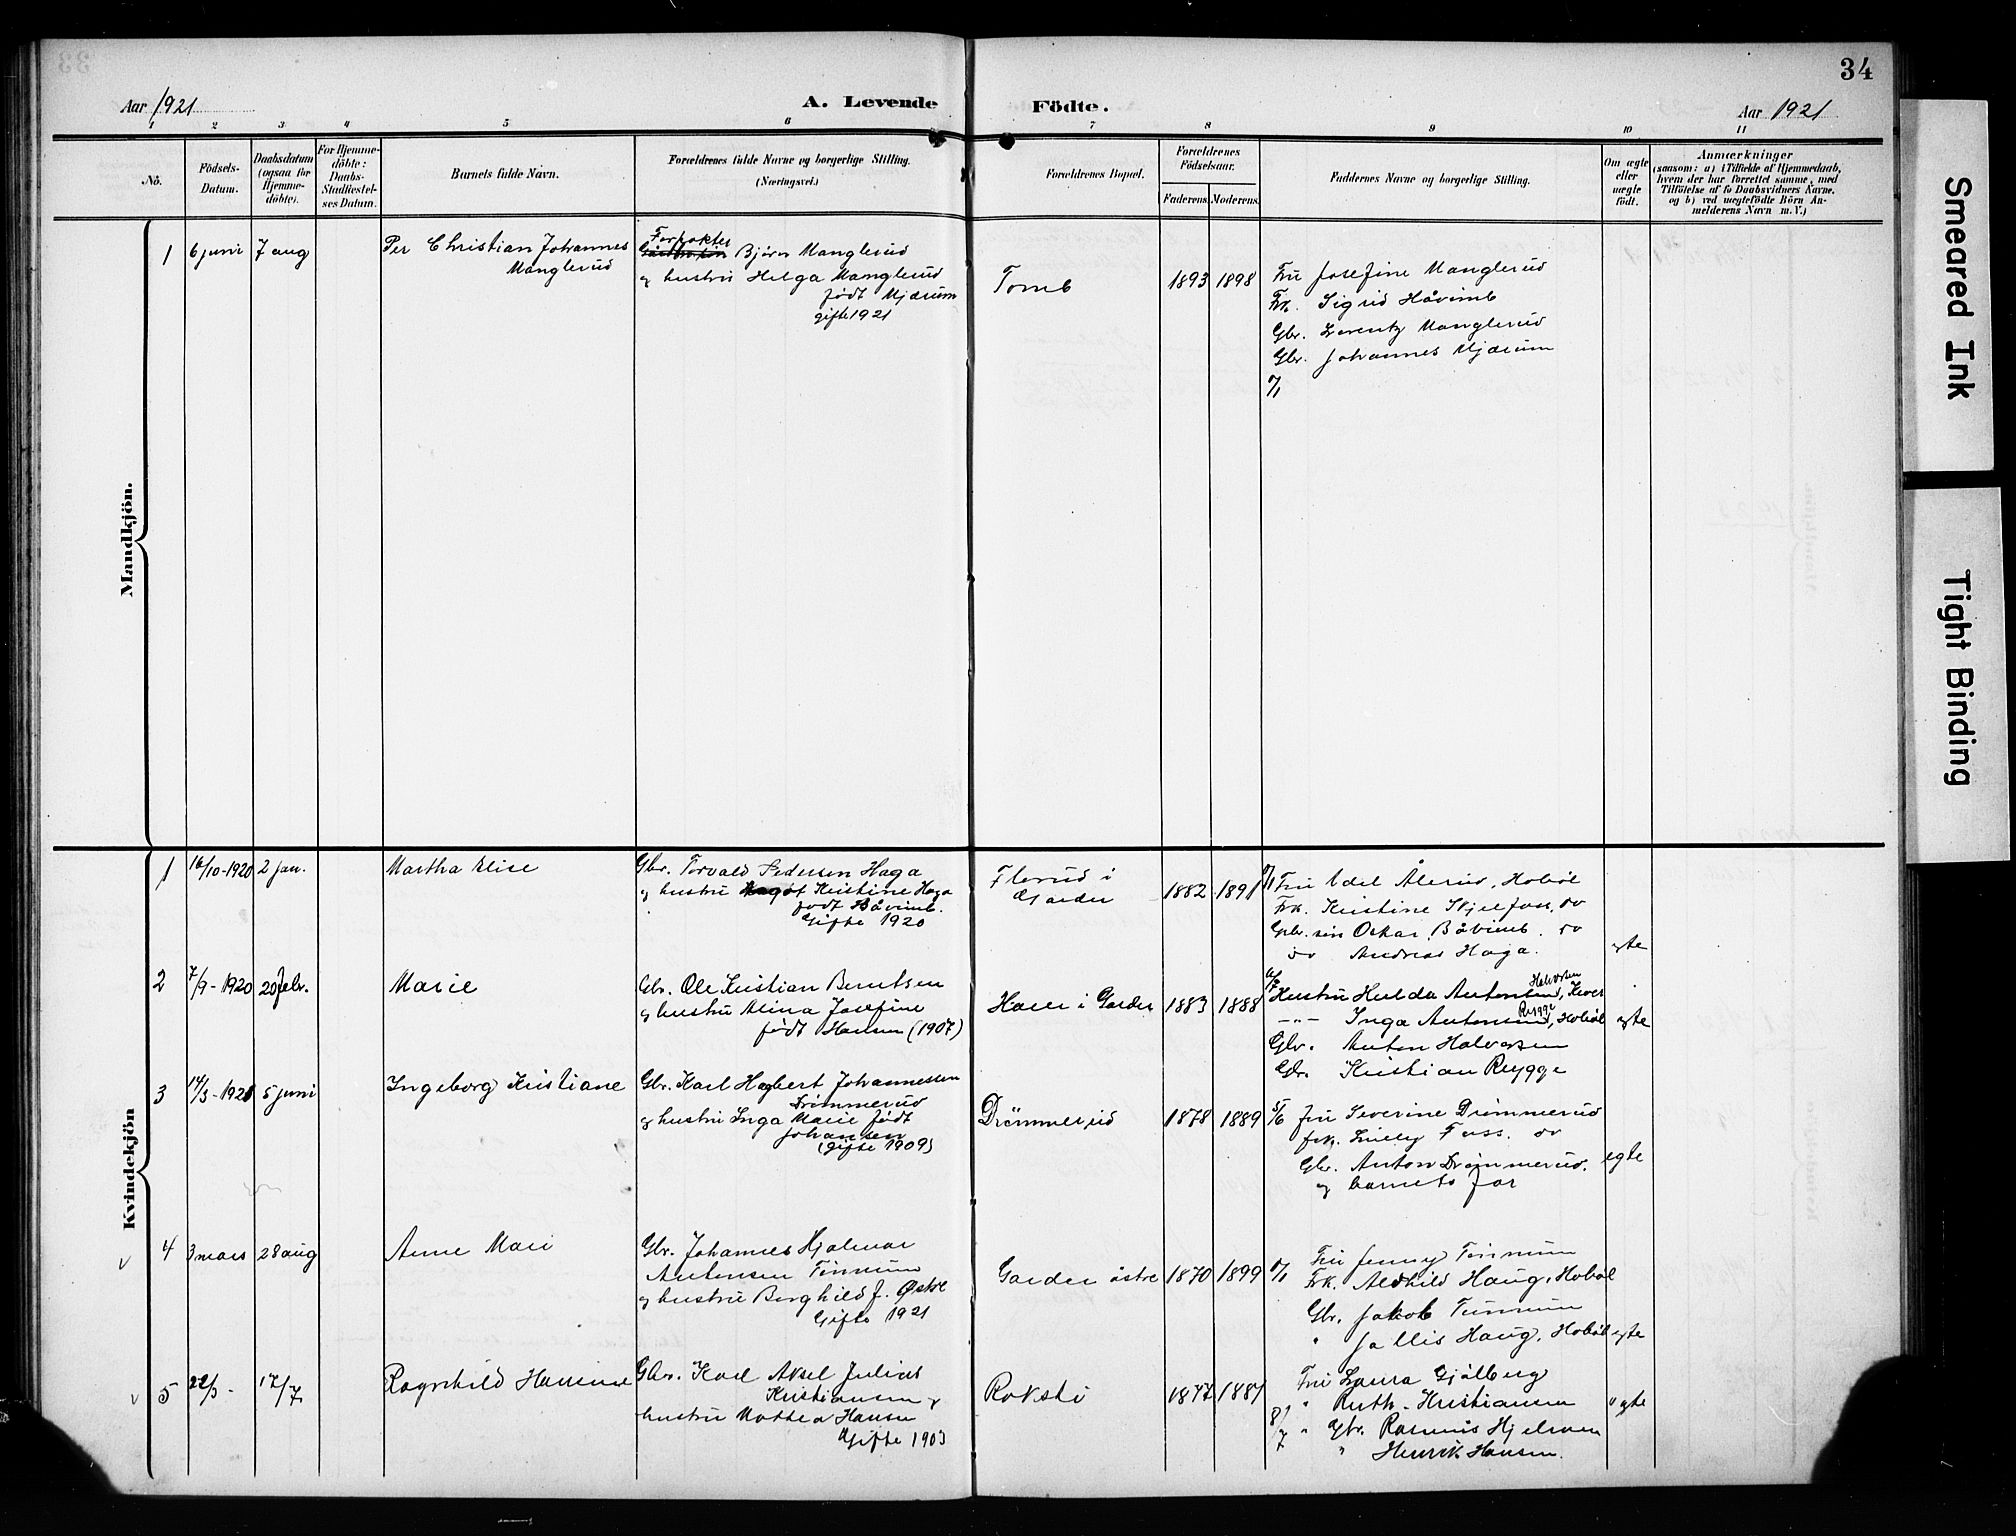 34
Aar 1921
A. Levende
Födte.
Aar 1921
1 2 3 4 5 6 7 8 9 10 11
Nô.
Födsels-
Datum.
Daabsdatum
(ogsaa for
Hjemme-
döbte).
For Hjemme-
döbte:
Daabs-
Stadfæstel-
ses Datum.
Barnets fulde Navn.
Forældrenes fulde Navne og borgerlige Stilling.
(Næringsvei.)
Forældrenes Bopæl.
Forældrenes
Födselsaar.
Faderens. Moderens.
Faddernes Navne og borgerlige Stilling.
Om ægte
eller
uægte
født.
Anmærkninger
(saasom: a) i Tilfælde af Hjemmedaab,
hvem der har forrettet samme, med
Tilföielse af to Daabsvidners Navne,
og b) ved uægtefödte Börn An-
melderens Navn m. V.)
Mandkjön.
1 6 juni 7 aug
Per Christian Johannes
Manglerud
Forpakter
Bjørn Manglerud
og hustru Helga Manglerud
født Mjærum
gifte 1921
Tomb
1893 1898
Fru Josefine Manglerud
Frk. Sigrid Håvimb
Gbr. Lorentz Manglerud
Gbr. Johannes Mjærum
Kvindekjön
1 16/10-1920 2 jan.
Martha Elise
Gbr. Torvald Pedersen Haga
og hustru Kristine Haga
født Båvimb.
Gifte 1920
Florud i
Garder
1882 1891
Fru Edel Ålerud, Hobøl
Frk. Kristine Skjelfoss, do
Gbr. søn Oskar Båvimb. do
do Andreas Haga.
egte
2 7/9-1920 20 febr.
Marie
Gbr. Ole Kristian Berntsen
og hustru Alina Josefine
født Hansen (1907)
Haver i Garder
1883 1888
Halvorsen
Hustru Hulda Antonsen,
Rygge
-"- Inga Antonsen, Hobøl
Gbr. Anton Halvorsen
Gbr. Kristian Rygge
egte
3 14/3-1921 5 juni
Ingeborg Kristiane
Gbr. Karl Hagbert Johannessen
Drømmerud
og hustru Inga Marie født
Johansen
(Gifte 1909)
Drömmerud
1878 1889
5/6 fru Severine Drømmerud
frk. Foss. do
Gbr. Anton Drømmerud.
og barnets far
egte
4 3 mars 28 aug
Anne Mari
Gbr. Johannes Hjalmar
Antonsen Tømmum
og hustru Borghild f. Østre
Gifte 1921
Garder østre
1870 1899
Fru Jenny Tømmum
Frk. Aldhild Haug, Hobøl
Gbr. Jakob Tømmum
" Haug, Hobøl
egte
5 22/3- 17/7
Ragnhild Hanine
Gbr. Karl Aksel Julius
Kristiansen og
hustru Mathea Hansen
Gifte 1903
Roksti
1877 1887
Fru Laura Gjølberg
" Ruth Kristiansen
8/7 " Gbr. Rasmus Hjelmen
" Henrik Hansen.
" egte
Smeared Ink
Tight Binding